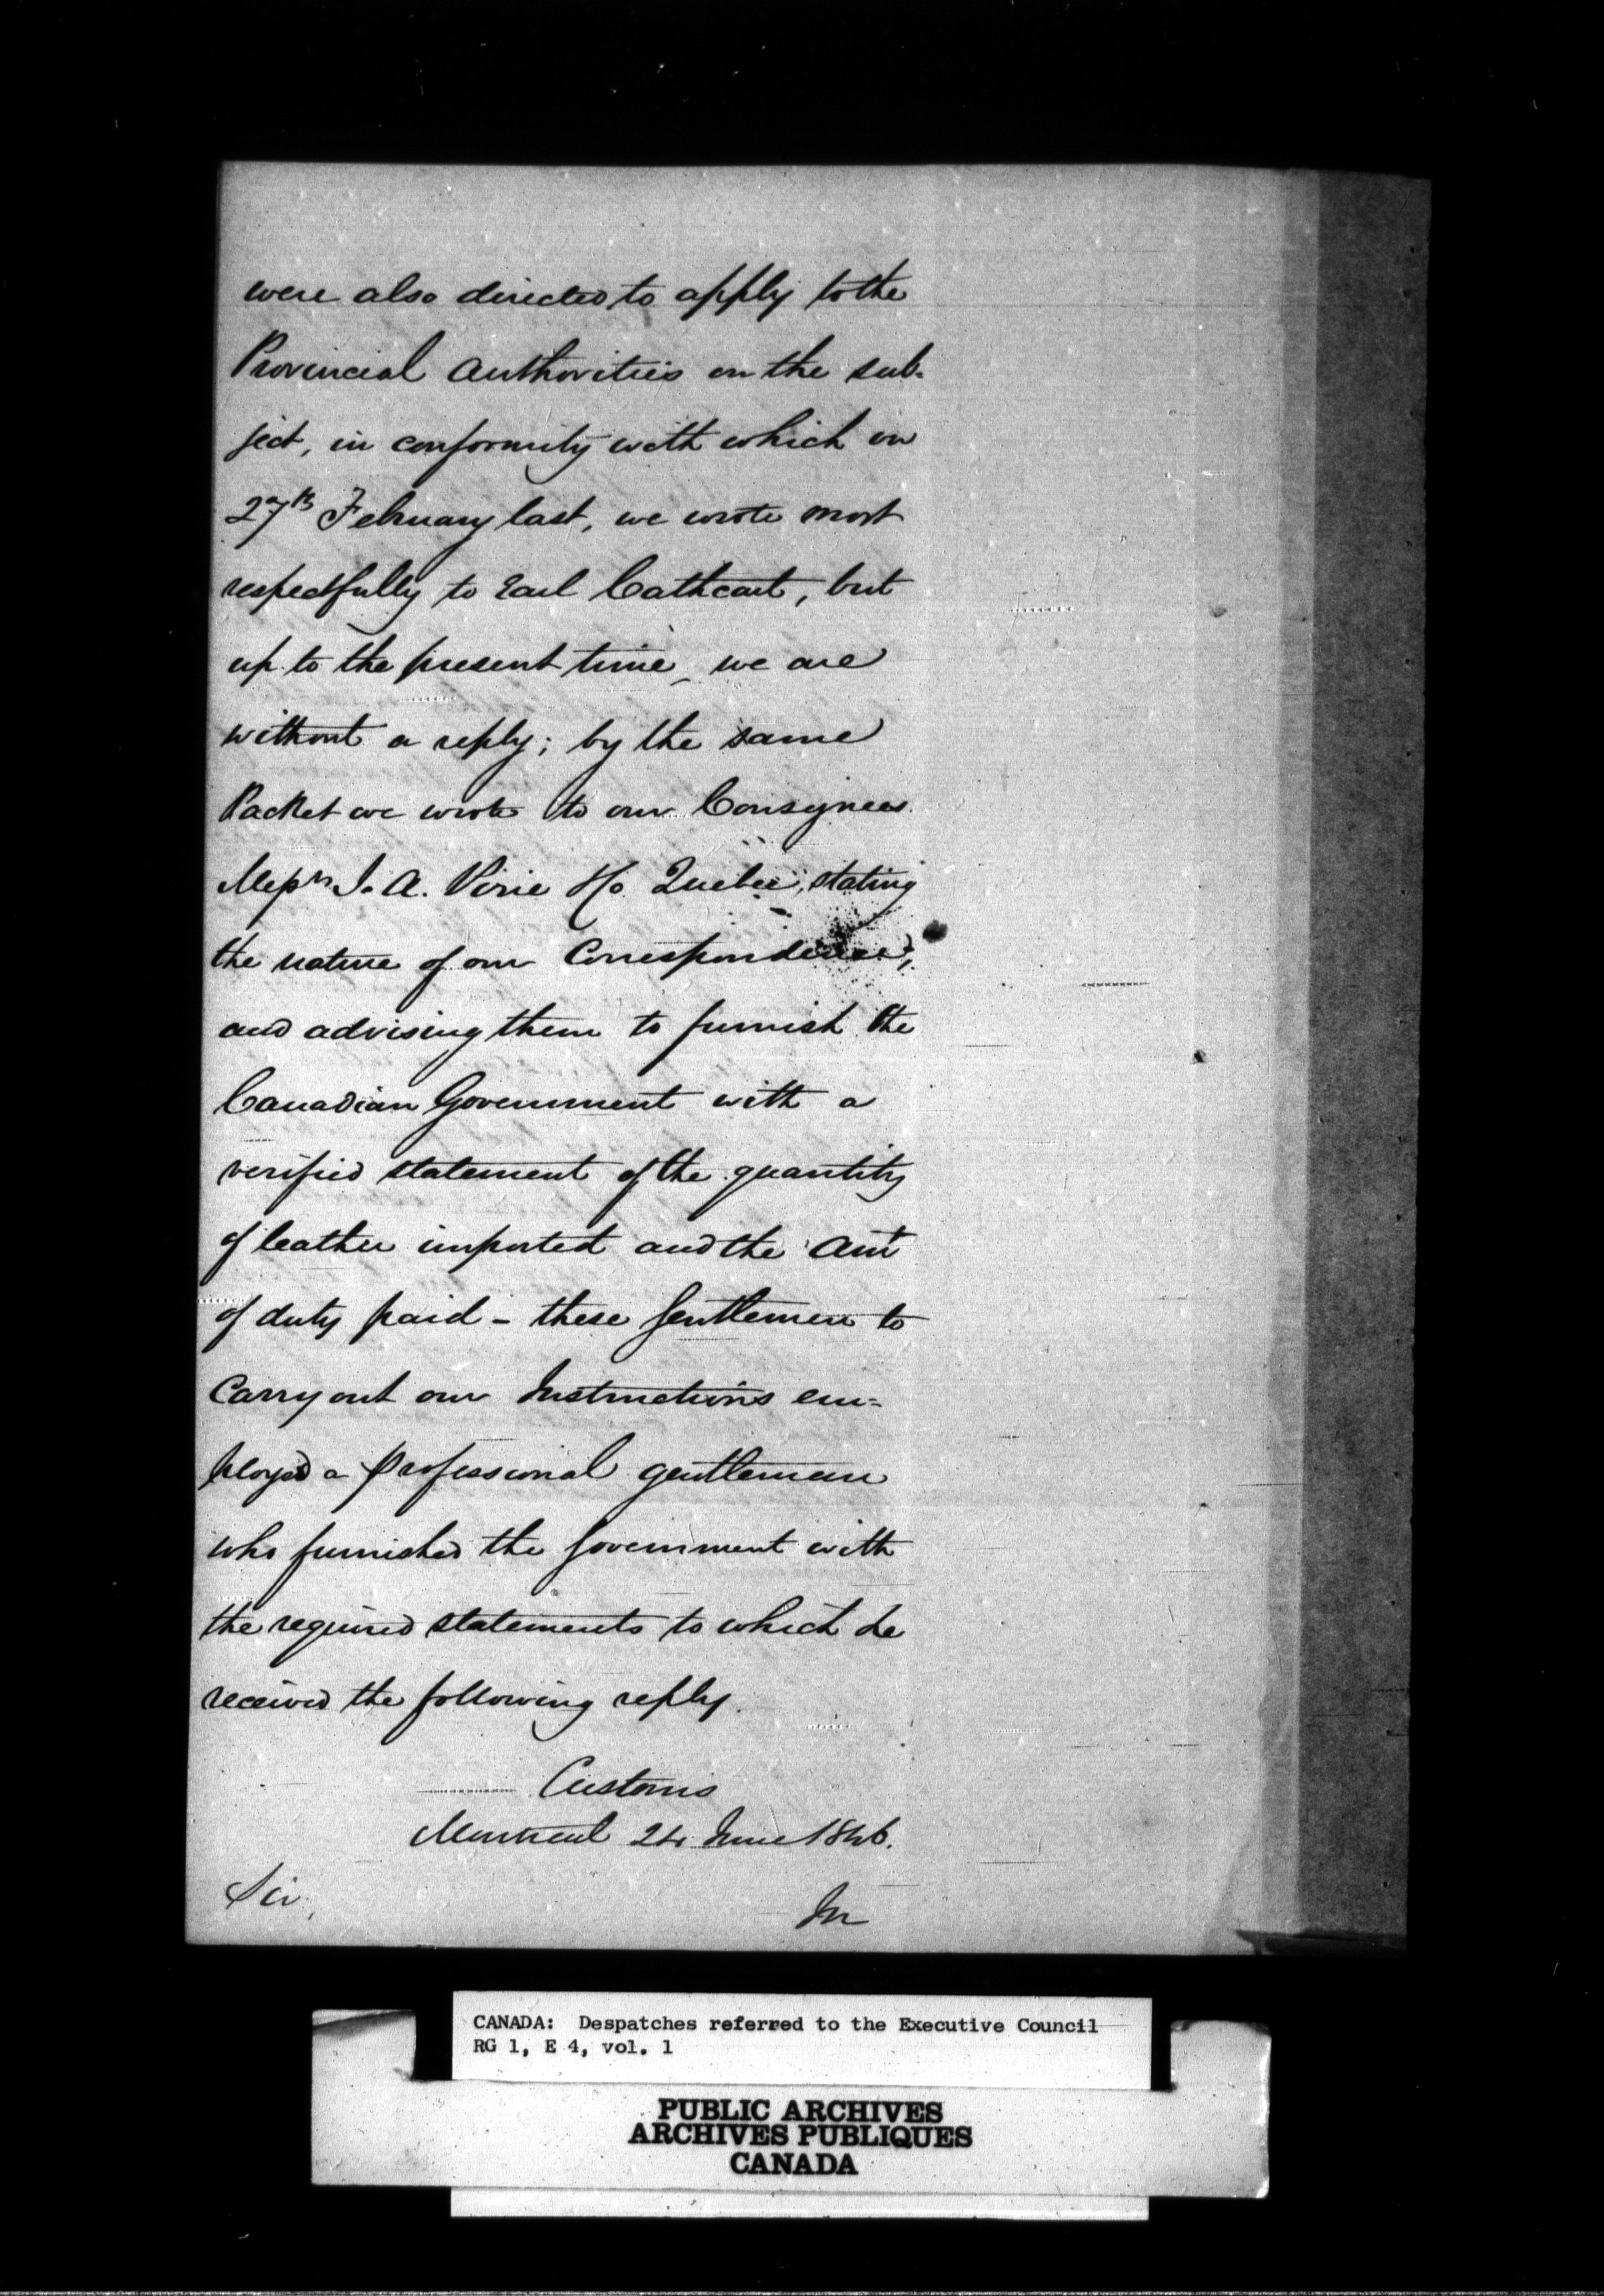 were also directed to apply to the
Provincial Authorities on the sub=
ject, in conformity with which on
27th February last, we wrote most
respectfully to Earl Cathcart, but
up to the present time, we are
without a reply; by the same
Packet we wrote to our Consignees
Messrs J. A. Pirie & Co. Quebec, stating
the nature of our Correspondence,
and advising them to furnish the
Canadian Government with a
verified statement of the quantity
of leather imported and the Amt
of duty paid - these Gentlemen to
Carry out our Instructions em=
ployed a Professional gentleman
who furnished the Government with
the required statements to which he
received the following reply.
Customs
Montreal 24 June 1846.
Sir,
In
CANADA: Despatches referred to the Executive Council
RG 1, E 4, vol. 1
PUBLIC ARCHIVES
ARCHIVES PUBLIQUES
CANADA